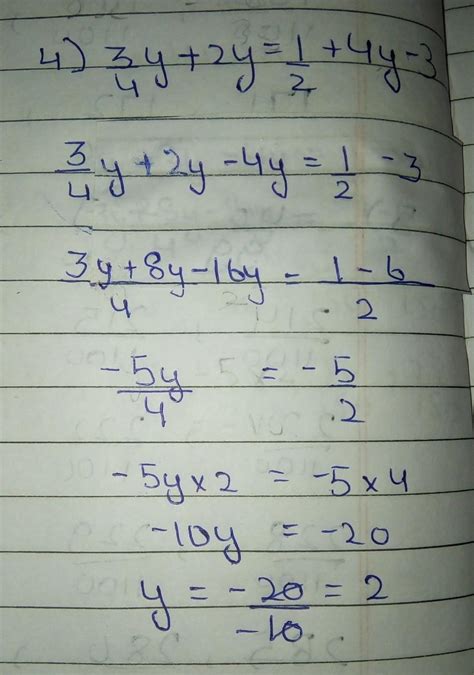 4) 3/4 y + 2y = 1/2 + 4y - 3
3/4 y + 2y - 4y = 1/2 - 3
3y + 8y - 16y / 4 = 1 - 6 / 2
-5y / 4 = -5 / 2
-5y × 2 = -5 × 4
-10y = -20
y = -20 / -10 = 2